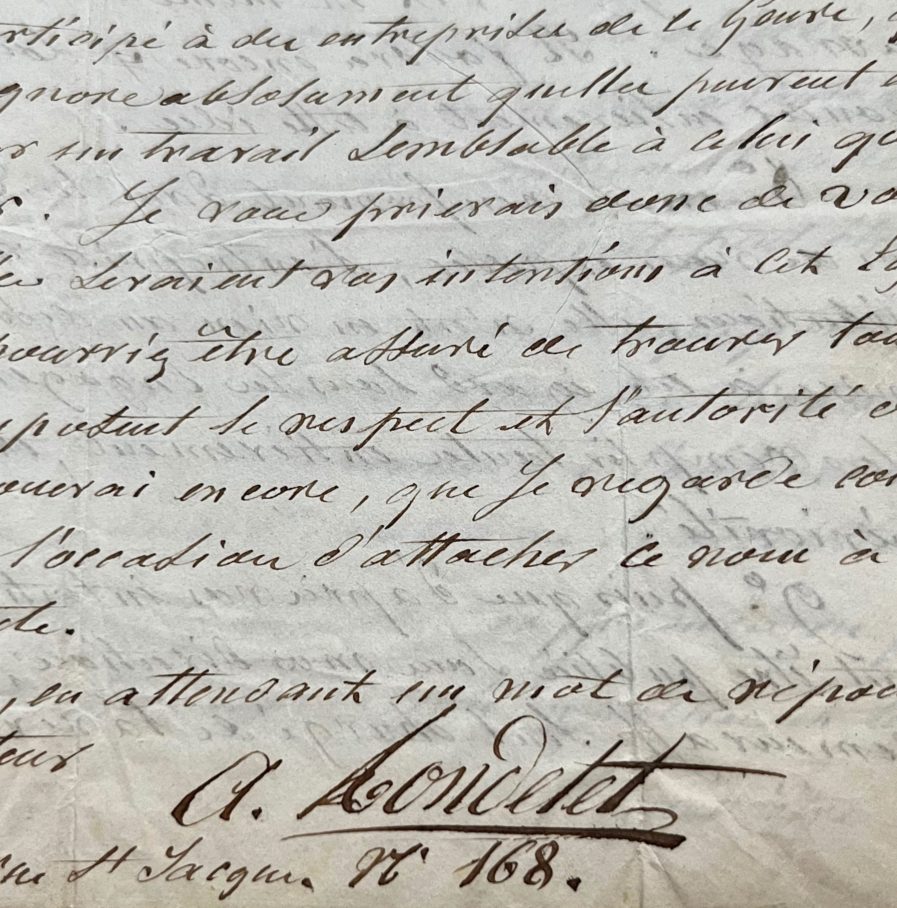 participé à des entreprises de ce Genre,
ignore absolument quelles peuvent
un travail semblable à celui qu
Je vous prierais donc de vo
seraient vos intentions à cet Eg
pourriez être assuré de trouver tou
posent le respect et l'autorité
ouerai encore, que Je regarde com
l'occasion d'attacher ce nom à
de.
, en attendant un mot de répon
teur
A. Londetet
rue St Jacques N° 168.